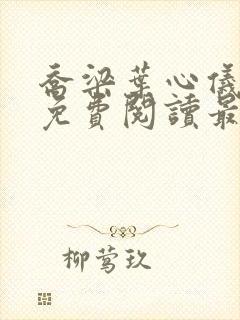 喬梁葉心儀
免費閱讀最
柳莺玖